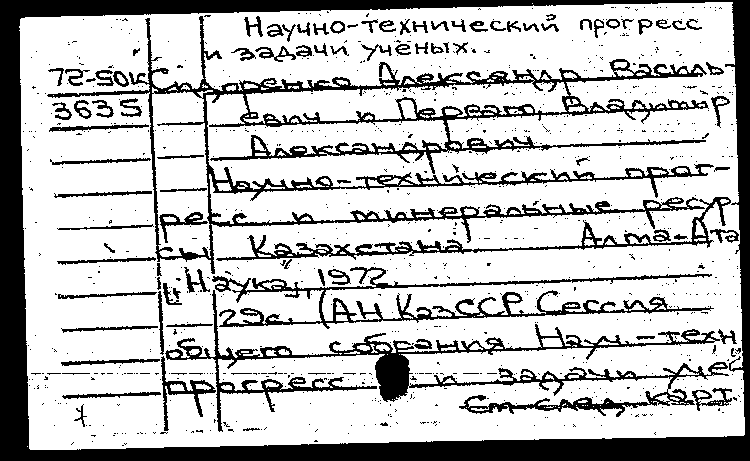 Научно-технический прогресс
и задачи учёных..
72-501
Сидоренко, Александр Василь-
3635
евич и Перваго, Владимир
Александрович.
Научно-технический прог-
ресс и минеральные ресур
сы Казахстана Алма-Ата
"Наука", 1972.
29с. (АН КазССР. Сессия
общего собрания Науч.-техн
прогресс и задачи учё
См след карт.